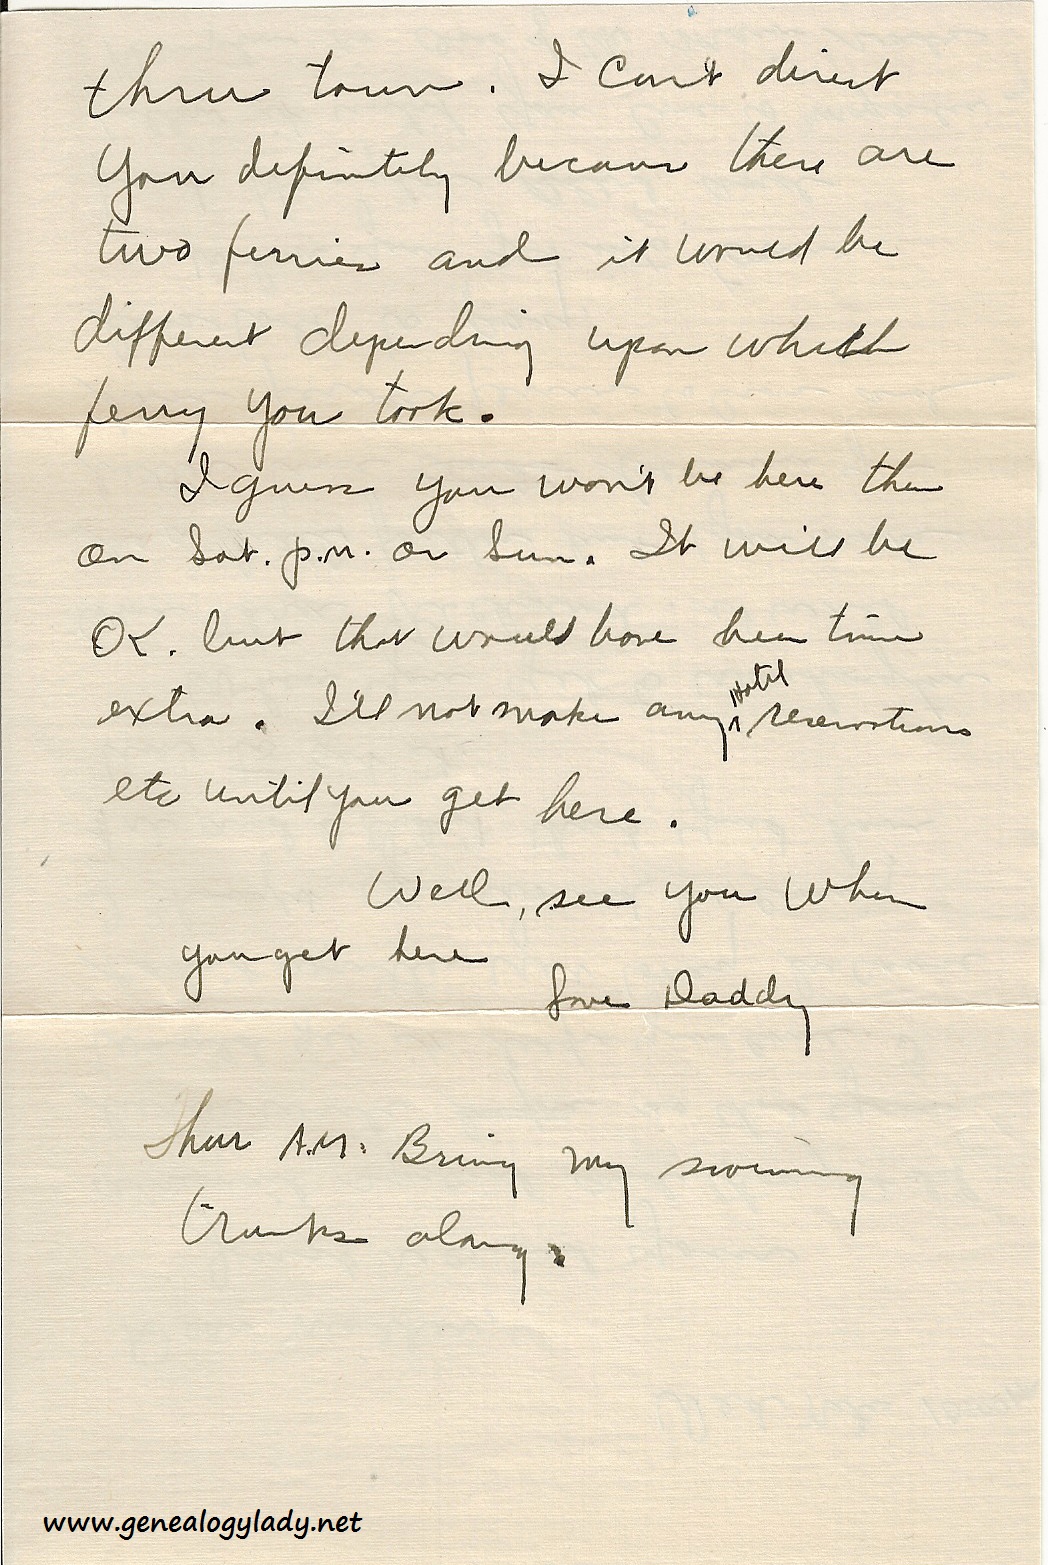 thru town. I can't direct
you definitely because there are
two ferries and it would be
different depending upon which
ferry you took.
I guess you won't be here then
on Sat. p.m. or Sun. It will be
OK. but that would have been time
extra. I'll not make any Hotel reservations
etc until you get here.
Well, see you when
you get here
Love Daddy
Thur A.M. Bring my swimming
trunks along.
www.genealogylady.net